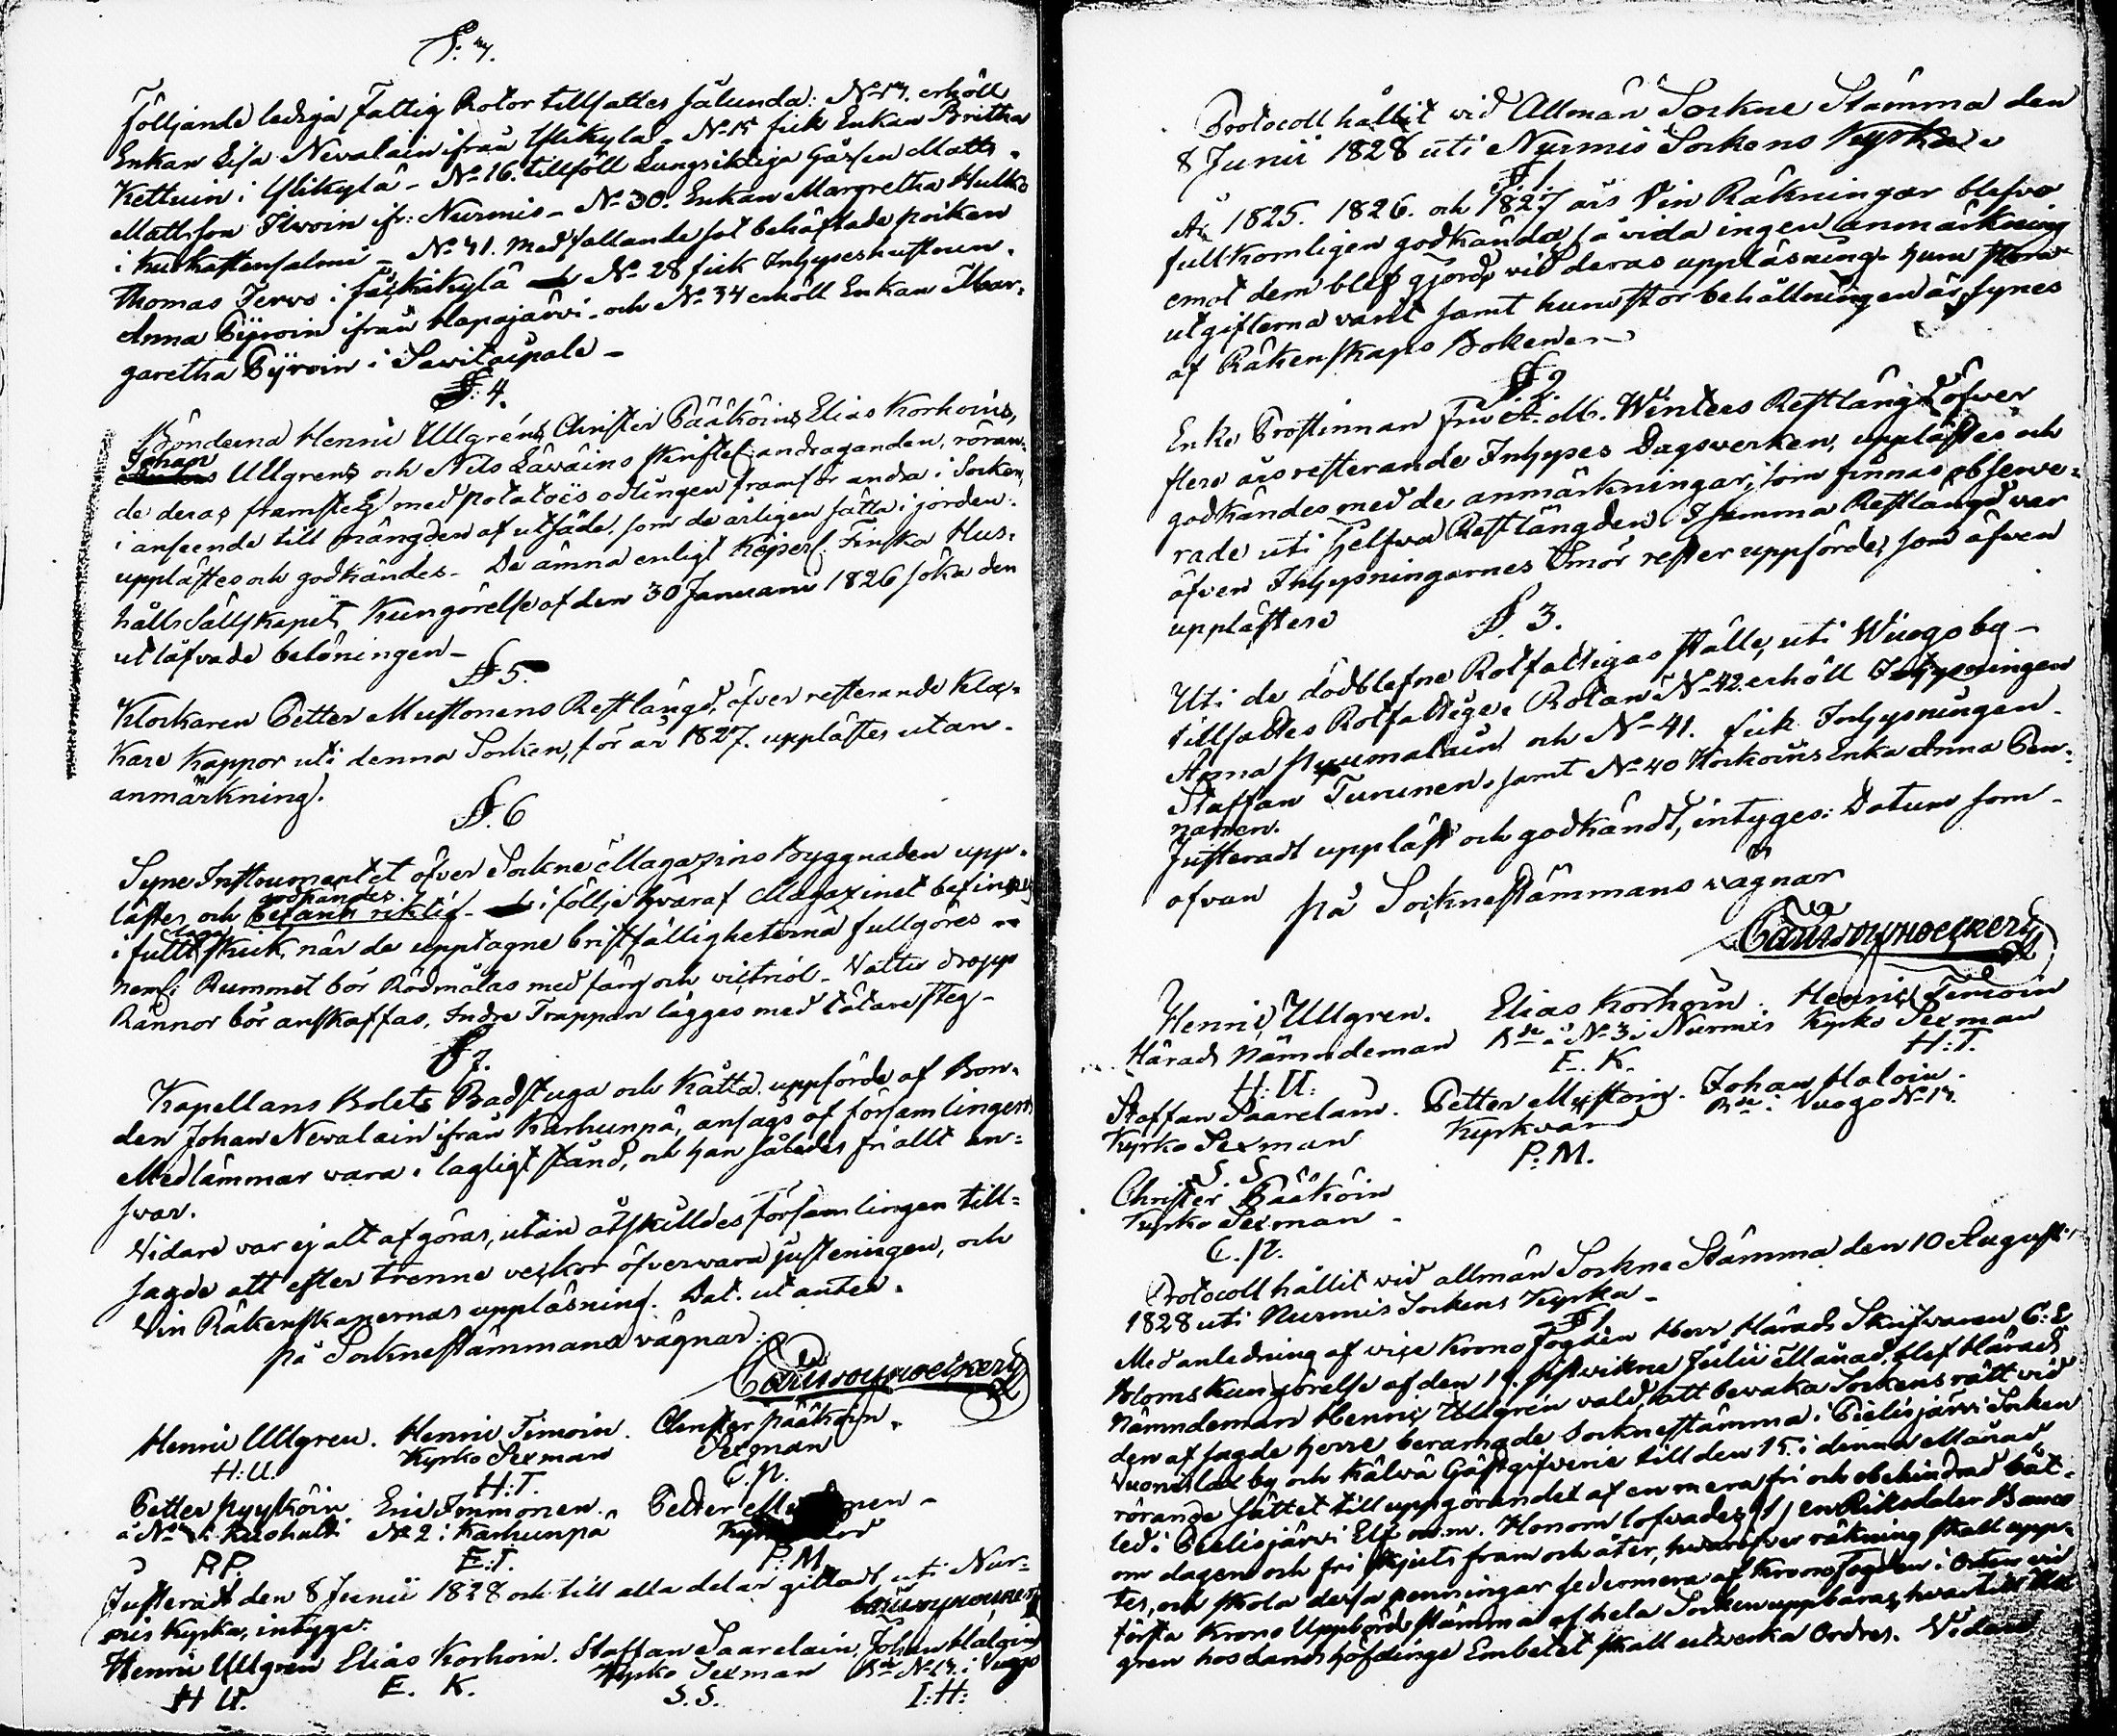 Följande lediga Fattig Rotor tillsattes sålunda: No 17. erhöll
Enkan Lisa Nevalain ifrån Ylikylä - No 15 fick Enkan Britha
Kettuin i Ylikylä - No 16. tillföll Lungsiktiga Gossen Matts
Mattsson Ilvoin ifr: Nurmis - No 30. Enkan Margretha
i - No 41. med fallande sot behäftade poiken
Thomas Jervo i No 28 fick Inhyseshustrun
Anna Pyroin ifrån Hapajärvi - och No 34 erhöll Enkan Mar-
garetha Pyroin i Savikaipale -
§ 4.
Bönderna Henric Ullgréns, Christer Pääköins, Elias Korhoins,
Johan
Ullgrens och Nils Läväins skriftel. andraganden, röran-
de deras framsteg med potatoës odlingen framför andra i Socken,
i anseende till mängden af utsäde, som de årligen sätta i jorden.
upplästes och godkändes - De ämna enligt Kejserl. Finska Hus-
hålls Sällskapets Kungörelse af den 30 Januarii 1826 söka den
utlåfvade belöningen -
§ 5.
Klockaren Petter Mustonens Restlängd, öfver resterande Kloc-
kare Kappor uti denna Socken, för år 1827. upplästes utan
anmärkning.
§ 6
Syne Instrumentet öfver Sockne Magazins Byggnaden upp-
godkändes
lästes och befants riktig - i följe hvaraf Magazinet befinnes
i fullt skick, när de upptagne bristfälligheterna fullgöres
neml: Rummet bör Rödmålas med färg och victriol - Vatten dropp
Rännor bör anskaffas, Indre Trappan lägges med tätare steg -
§ 7.
Kapellans Bolets Badstuga och Kåtta uppförde af Bon-
den Johan Nevalain ifrån Karhunpä, ansågs af församlingens
Medlämmar vara i lagligt stånd, och han således fri allt an-
svar.
Vidare var ej att afgöras, utan åtskilldes församlingen till-
sagde att efter trenne veckor öfvervara justeringen, och
Vin Räkenskapernas uppläsning. Dat. ut antea.
på Sockneståmmans vägnar:
Henric Ullgren. Henric Timoin. Christer Pääköin.
Kyrko Sexman Sexman
H: U. H: T. C. P.
Petter Pyyköin Eric Immonen. Petter
No 2 i Karhunpä
P. P. E: I. P: M.
Justeradt den 8 Junii 1828 och till alla delar gilladt uti Nur-
mis Kyrka, intyga:
Henric Ullgren Elias Korhoin. Staffan Saarelain, Johan Haloin
Kyrko Sexman Bde No 13. i Vuogo
H U. E. K. S. S. I: H:
Protocoll hållit vid Allmän Sockne Stämma den
8 Junii 1828 uti Nurmis Sockens Kyrka
§ 1
År 1825. 1826. och 1827 års Vin Räkningar blefvo
fullkomligen godkända, så vida ingen anmärkning
emot dem blef gjord, vid deras uppläsning - huru stora
utgifterna varit samt huru stor behållningen är, synes
af Räkenskaps Boken
§ 2.
Enke Prostinnan Fru A. M. Winters Restlängd öfver
flere års resterande Inhyses Dagsverken, upplästes och
godkändes med de anmärkningar, som finnas observe-
rade uti sjelfva Restlängden. I samma Restlängd var
äfven Inhysningarnes Smör rester uppförde, som äfven
upplästes
§ 3.
Uti de dödblefne Rotfattigas ställe, uti Wuogo by -
tillsattes Rotfattige. Rotan No 42. erhöll Inhysningen
Anna och No 41. fick Inhysningen
Staffan Turunen, samt No 40 Korkoins Enka Anna Pen-
nanen.
Justeradt uppläst och godkändt, intyges: Datum som
ofvan
på Sockneståmmans vägnar
Henric Ullgren. Elias Korhoin. Henric Timoin
Härads Nämndeman Bde å No 3 i Nurmis Kyrko Sexman
H: U: E. K. H: T.
Staffan Saarelain. Petter Mustoin. Johan Haloin.
Kyrko Sexman Kyrkvärd Bde i Vuogo No 13.
S. S P: M.
Christer Pääköin
Kyrko Sexman -
C. P.
Protocoll hållit vid allmän Sockne Stämma den 10 Augusti
1828 uti Nurmis Sockens Kyrka -
§ 1
Med anledning af vice Krono Fogden Herr Härads Skrifvaren C: E
Bloms Kungörelse af den 19. sistvikne Julii Månad, blef Härads
Nämndeman Henric Ullgrén vald, att bevaka Sockens rätt vid
den af sagde Herre beramade Sockneståmma i Pielisjärvi Socken
Vuonislax by och Kälvä Gästgifveri till den 15. i denna Månad
rörande sättet till uppgörandet af en mera fri och obehindrad båt-
led i Pielisjärvi Elf m. m. Honom lofvades (1) en Riksdaler Banco
om dagen och fri skjuts fram och åter, hvaröfver räkning skall upp-
tes, och skola dessa penningar sedermera af Kronofogden i Orten vid
första Krono Uppbörds stämma af hela Socken uppbäras, hvartill Ull-
gren hos Landshöfdinge Embetet skall utverka Ordres. Vidare